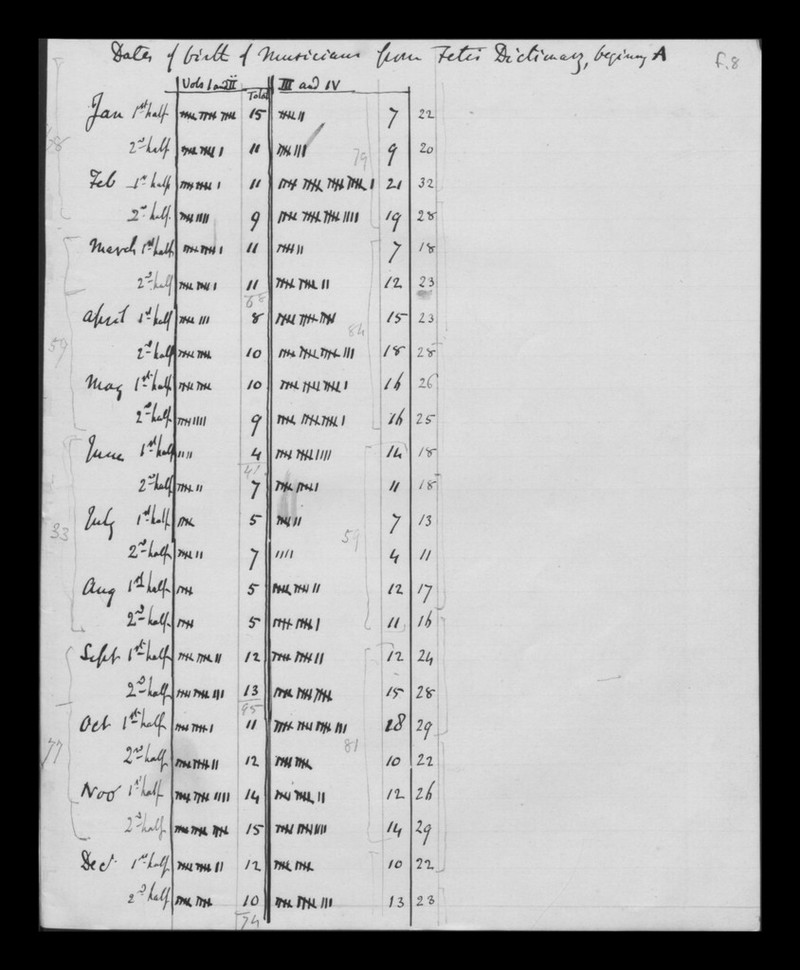 Dates of birth of Musicians from Fetis Dictionary, beginng A f.8
Vols I and II Total III and IV
Jan 1st half 15 7 22
2nd half 11 9 20
79
Feb 1st half 11 21 32
2nd half 9 19 28
March 1st half 11 7 18
2nd half 11 12 23
68
April 1st half 8 15 23
84
59 2nd half 10 18 28
May 1st half 10 16 26
2nd half 9 16 25
June 1st half 4 14 18
41
2nd half 7 11 18
33 July 1st half 5 7 13
59
2nd half 7 4 11
Aug 1st half 5 12 17
2nd half 5 11 16
Sept 1st half 12 12 24
2nd half 13 15 28
95
Oct 1st half 11 18 29
81
77 2nd half 12 10 22
Nov 1st half 14 12 26
2nd half 15 14 29
Dec 1st half 12 10 22
2nd half 10 13 23
74